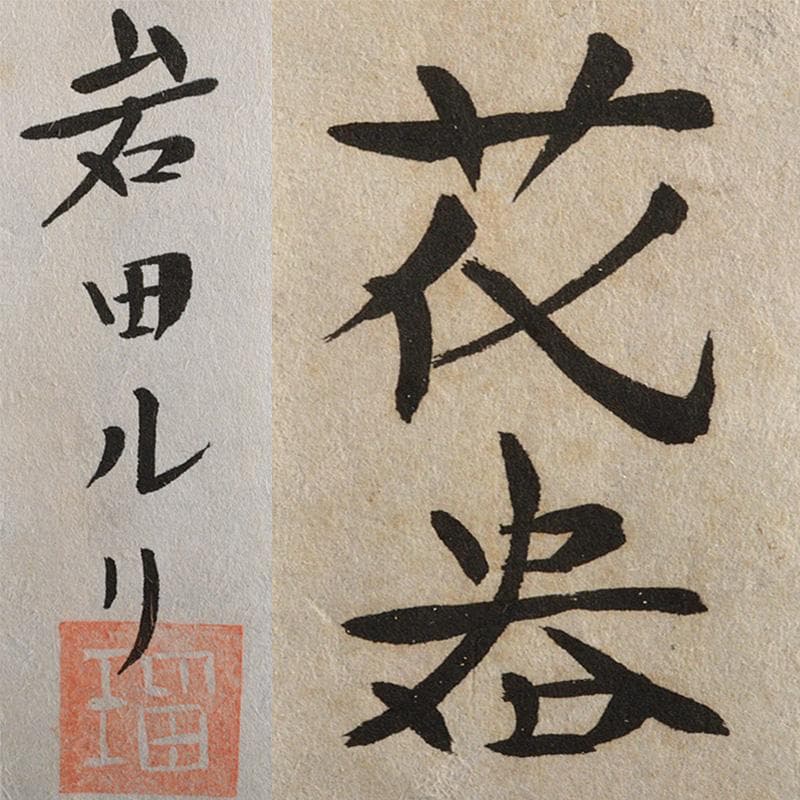 花器
岩田ルリ
瑠